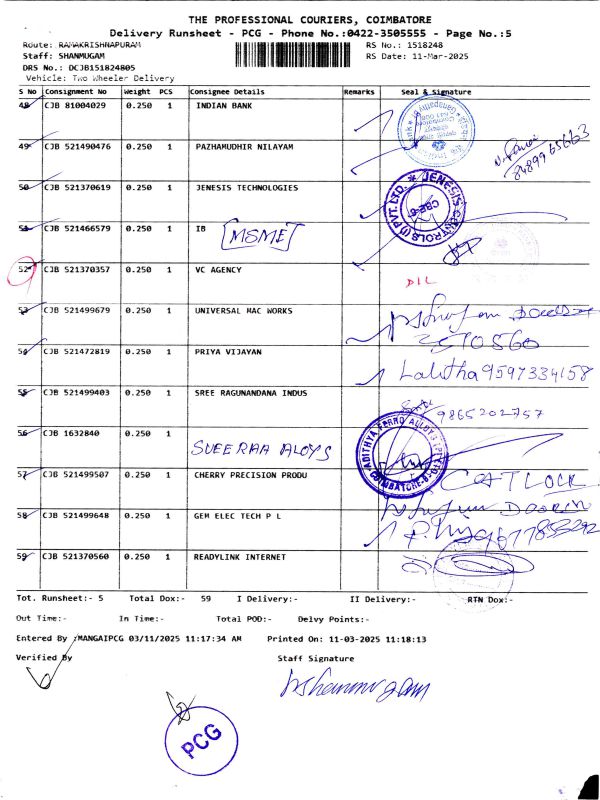 THE PROFESSIONAL COURIERS, COIMBATORE
Delivery Runsheet - PCG - Phone No.:0422-3505555 - Page No.:5
Route: RAMAKRISHNAPURAM RS No.: 1518248
Staff: SHANMUGAM RS Date: 11-Mar-2025
DRS No.: DCJB151824805
Vehicle: Two Wheeler Delivery
S No Consignment No Weight PCS Consignee Details Remarks Seal & Signature
48 CJB 81004029 0.250 1 INDIAN BANK
49 CJB 521490476 0.250 1 PAZHAMUDHIR NILAYAM
8489965663
50 CJB 521370619 0.250 1 JENESIS TECHNOLOGIES
JENESIS CONTROLS (I) PVT. LTD. CBE-6
51 CJB 521466579 0.250 1 IB [MSMET]
52 CJB 521370357 0.250 1 VC AGENCY
DIL
53 CJB 521499679 0.250 1 UNIVERSAL MAC WORKS
2570560
54 CJB 521472819 0.250 1 PRIYA VIJAYAN
Lalitha 9597334158
55 CJB 521499403 0.250 1 SREE RAGUNANDANA INDUS
9865202757
56 CJB 1632840 0.250 1
SUEERAA ALOYS
ADITHYA FERRO ALLOYS (P) LTD COIMBATORE
57 CJB 521499507 0.250 1 CHERRY PRECISION PRODU
58 CJB 521499648 0.250 1 GEM ELEC TECH P L
59 CJB 521370560 0.250 1 READYLINK INTERNET
Tot. Runsheet:- 5 Total Dox:- 59 I Delivery:- II Delivery:- RTN Dox:-
Out Time:- In Time:- Total POD:- Delvy Points:-
Entered By :MANGAIPCG 03/11/2025 11:17:34 AM Printed On: 11-03-2025 11:18:13
Verified By Staff Signature
PShanmugam
PCG